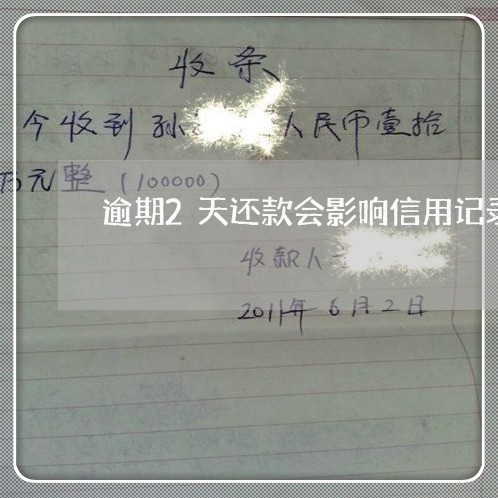 收条
今收到孙 人民币壹拾
万元整（100000）
逾期2 天还款会影响信用记录
收款人
2011年6月2日